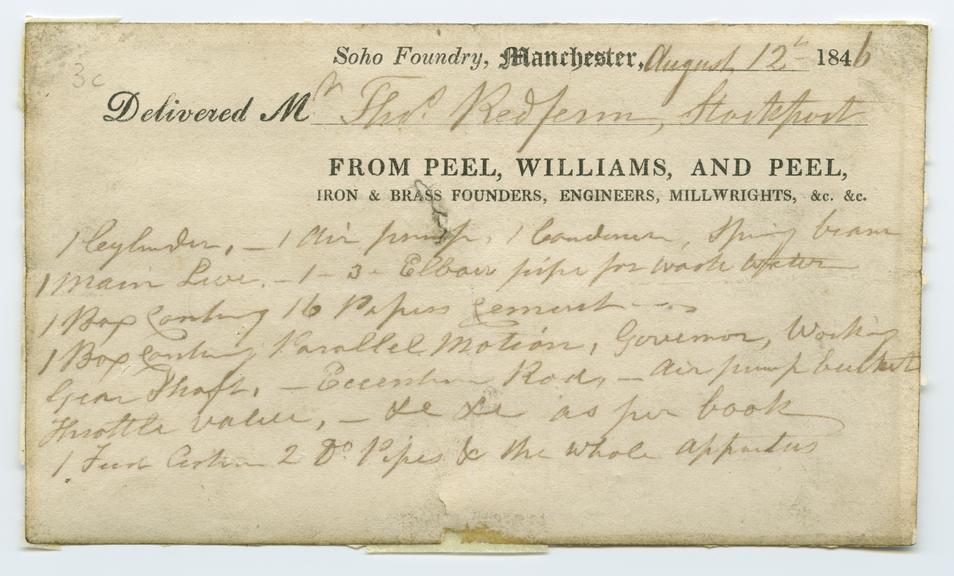 3c
Soho Foundry, Manchester, August 12th 1846
Delivered Mr Thos. Redfern, Stockport
FROM PEEL, WILLIAMS, AND PEEL,
IRON & BRASS FOUNDERS, ENGINEERS, MILLWRIGHTS, &c. &c.
1 Cylinder, — 1 Air pump, 1 Condenser, Spring beam
1 Main — 1 - 3 - Elbow pipe for waste Water
1 Box Containg 16 Papers Cement
1 Box Containg Parallel Motion, Governor, Working
Gear Shaft, — Eccentric Rods, — Air pump bucket
Throttle valve, — &c &c as per book
1 Feed Cistern 2 Do Pipes & the whole apparatus